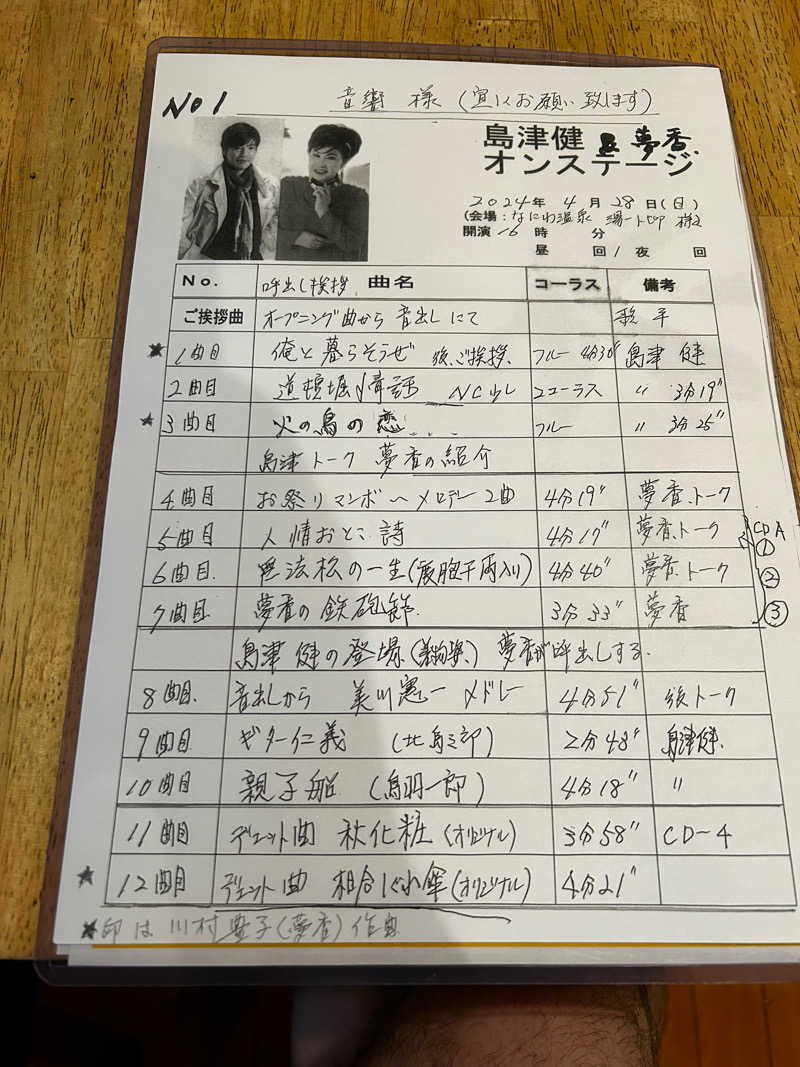 No 1
音響 様 (宜しくお願い致します)
島津健 & 夢香
オンステージ
2024年 4月 28日(日)
(会場:なにわ温泉 湯一トピア 様
開演 16 時 分
昼 回/夜 回
No. 呼出し挨拶 曲名 コーラス 備考
ご挨拶曲 オープニング曲から 音出しにて 歌手
★ 1曲目 俺と暮らそうぜ 後、ご挨拶、 フルー 4分30" 島津 健
2曲目 道頓堀情話 NC少し 2コーラス 〃 3分19"
★ 3曲目 火の鳥の恋 フルー 〃 3分25"
島津トーク 夢香の紹介
4曲目 お祭りマンボ〜メロデー2曲 4分19" 夢香、トーク
5曲目 人情おとこ詩 4分17" 夢香、トーク CDA ①
6曲目 無法松の一生(度胸千両入り) 4分40" 夢香、トーク ②
7曲目 夢香の鉄砲節 3分33" 夢香 ③
島津 健の登場 夢香が呼出しする。
8曲目 音出しから 美川憲一 メドレー 4分51" 後トーク
9曲目 ギター仁義 (北島三郎) 2分48" 島津健
10曲目 親子船 (鳥羽一郎) 4分18" 〃
11曲目 デュエット曲 秋化粧 (オリジナル) 3分58" CD-4
★ 12曲目 デュエット曲 相合しぐれ傘(オリジナル) 4分21"
★印は 川村 子(夢香)作曲